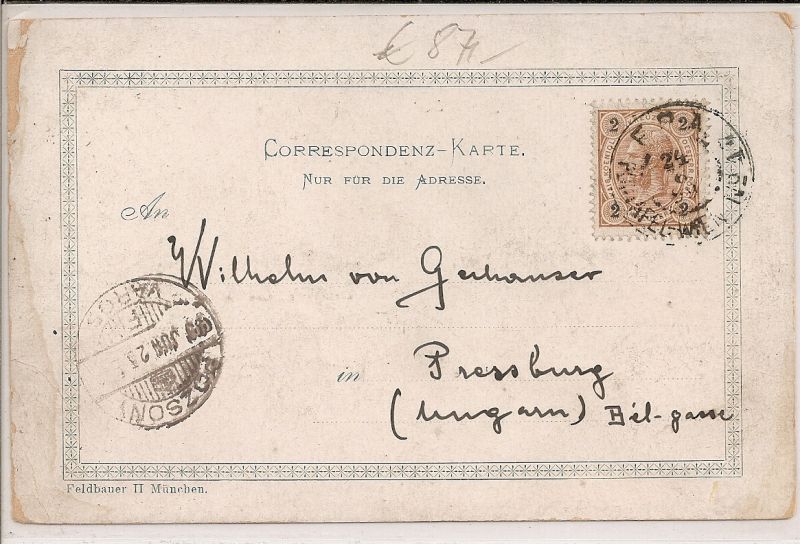 € 87,-
CORRESPONDENZ-KARTE.
NUR FÜR DIE ADRESSE.
2 2
2 2
WIEN
An
Wilhelm von Gerhauser
in Pressburg
(Ungarn) Bél-gasse
POZSONY
JUN 23
Feldbauer II München.